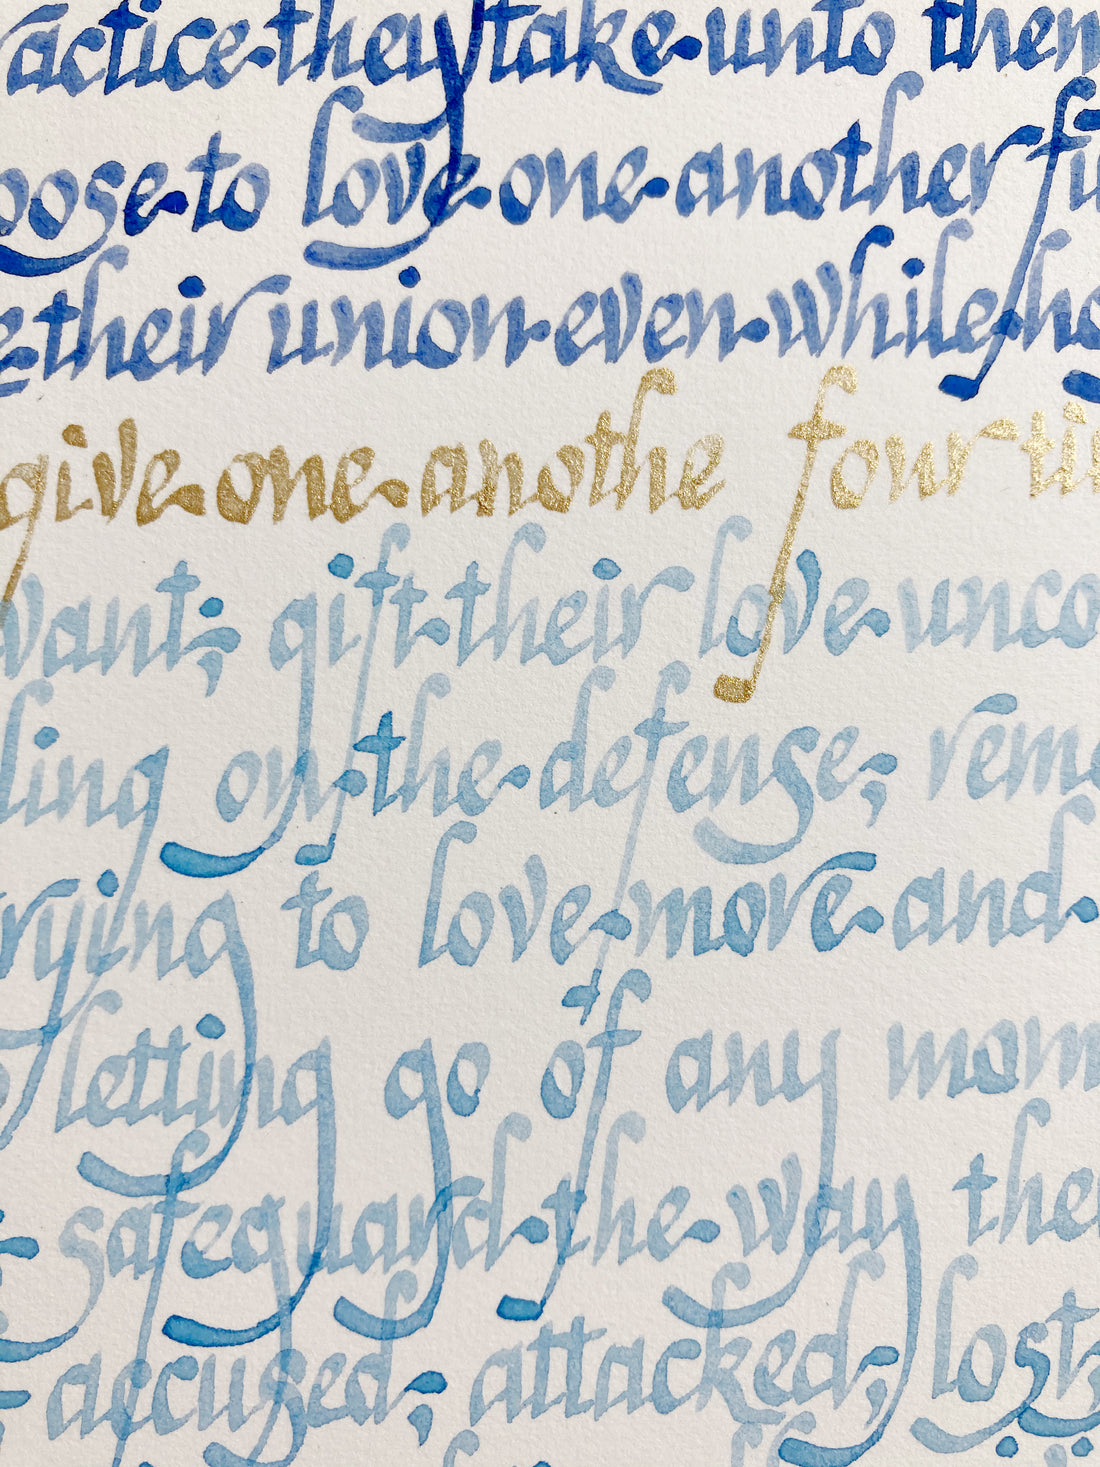 ractice they take unto them
oose to love one another fi
e their union even while ho
give one anothe four ti
want; gift their love unco
ling on the defense; reme
rying to love more and
letting go of any mom
safeguard the way the
accused, attacked, lost,